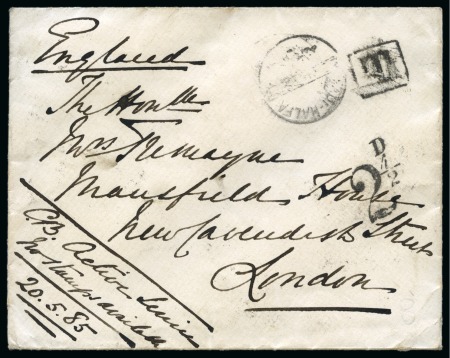 England
The Honble
Mrs Tremayne
Mansfield House
New Cavendish Street
London
On Active Service
No stamps available
20.5.85
HALFA
T
D
2½